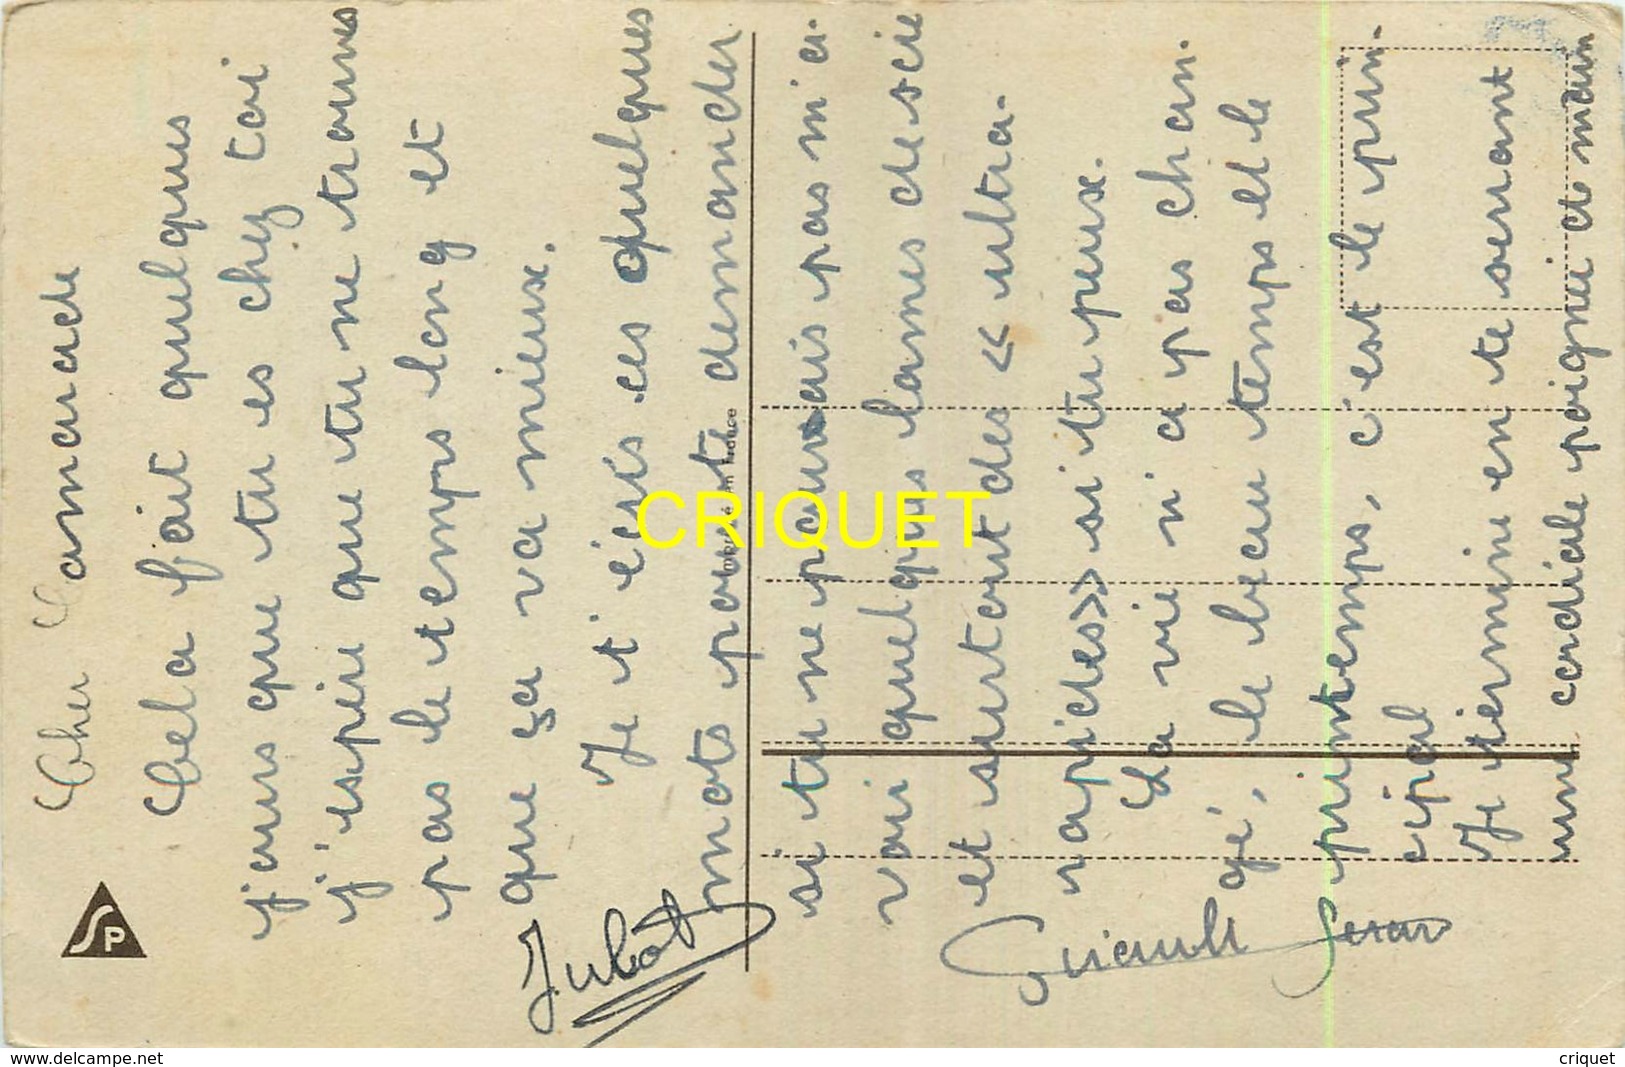 Cher Camarade
Cela fait quelques
jours que tu es chez toi
j'espère que tu ne trouves
pas le temps long et
que ça va mieux.
Je t'écris ces quelques
mots pour te demander
si tu ne pourrais pas m'a-
voir quelques lames de scie
et surtout des « ultra-
rapides» si tu peux.
La vie n'a pas chan-
gé, le beau temps et le
printemps, c'est le prin-
cipal
Je termine en te serrant
une cordiale poignée et main
J. Subot
Guiault
SP
CRIQUET
www.delcampe.net
criquet